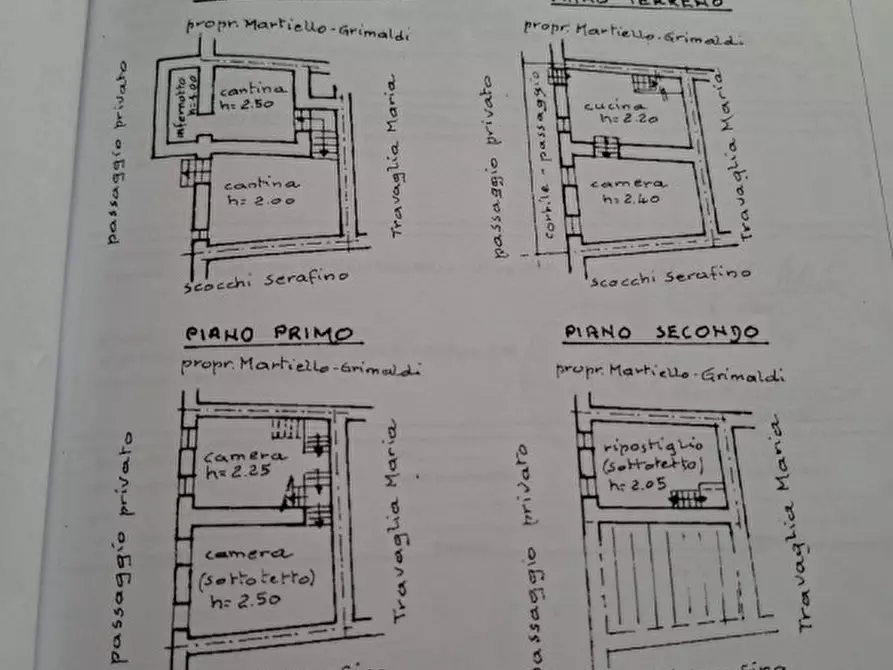 PIANO TERRENO
propr. Martiello-Grimaldi
passaggio privato
infernotto
h=1.00
cantina
h=2.50
cantina
h=2.00
Travaglia Maria
Scocchi Serafino
propr. Martiello-Grimaldi
passaggio privato
cortile-passaggio
cucina
h=2.20
camera
h=2.40
Travaglia Maria
Scocchi Serafino
PIANO PRIMO
propr. Martiello-Grimaldi
passaggio privato
camera
h=2.25
camera
(sottotetto)
h=2.50
Travaglia Maria
PIANO SECONDO
propr. Martiello-Grimaldi
passaggio privato
ripostiglio
(sottotetto)
h=2.05
Travaglia Maria